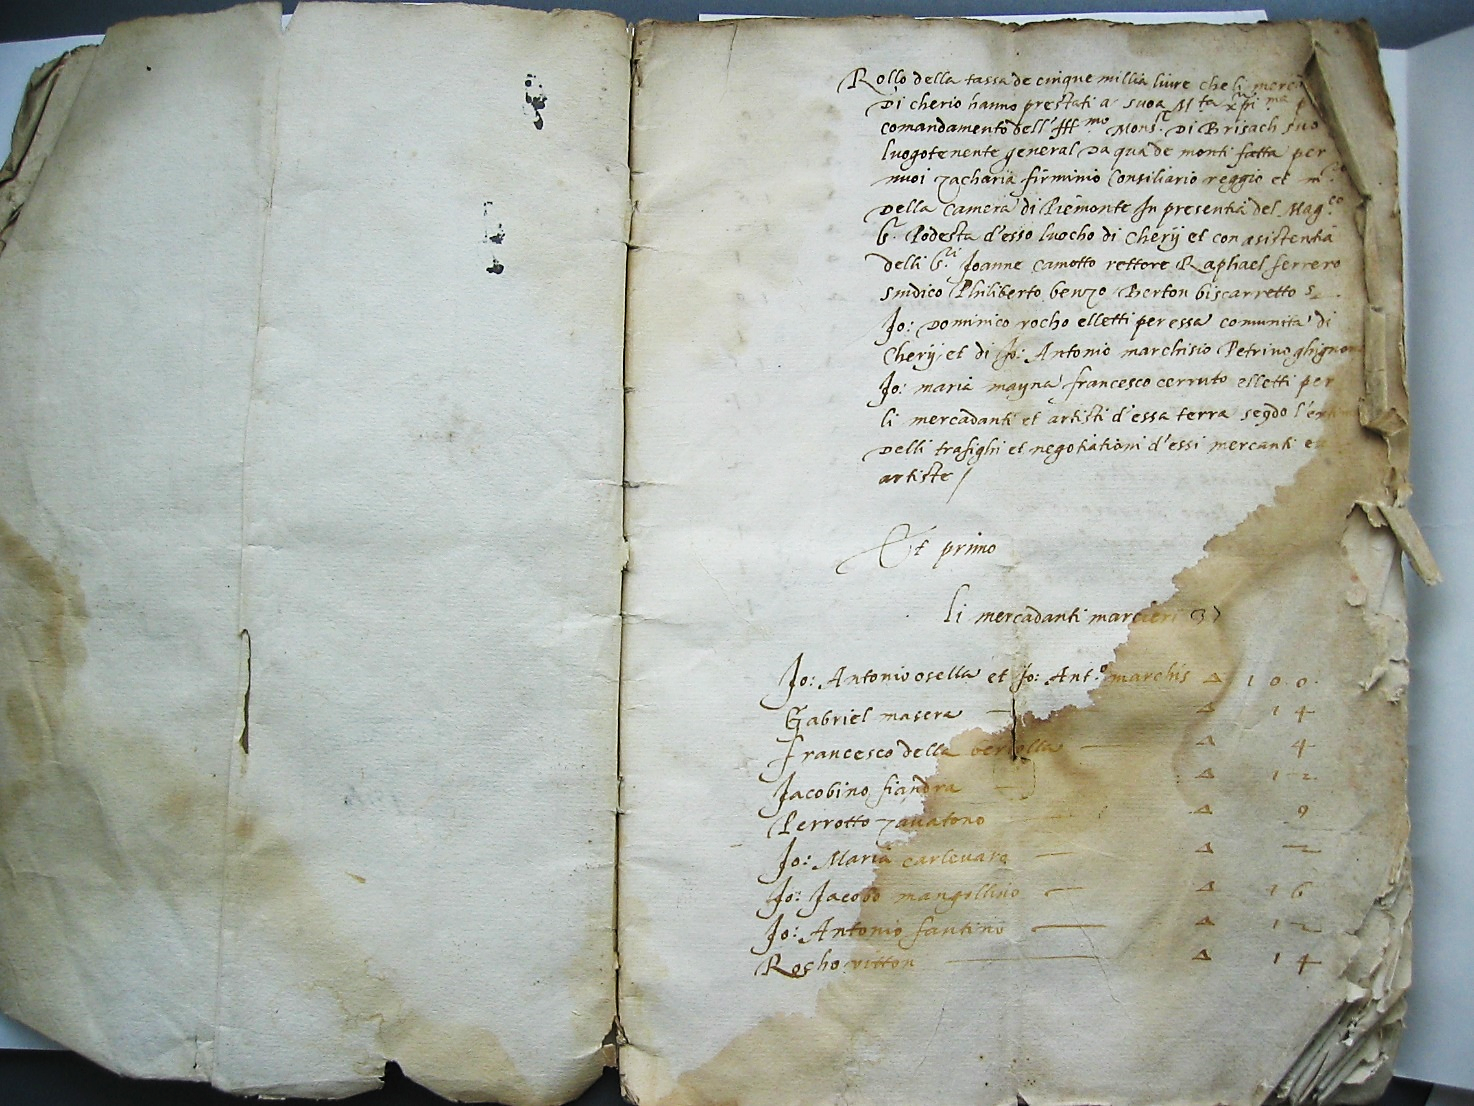 Rollo della tassa de cinque millia livre che li merca
Di cherio hanno prestati a suoa Mta xpi ma p
comandamento dell' Ill mo Monsr Di Brisach suo
luogotenente general Da qua de monti fatta per
nuoi zacharia firminio Consiliario reggio et
Della Camera di Piemonte In presentia del Mag.co
Sr Podesta d'esso luocho di Cherij et con asistentia
delli Sri Joanne camotto rettore Raphael ferrero
sindico Philiberto benzo Berton biscarretto
Jo: Dominico rocho elletti per essa comunita di
Cherij et di Jo: Antonio marchisio Petrino ghignon
Jo: maria mayna francesco cerruto elletti per
li mercadanti et artisti d'essa terra segdo l'
Delli trafighi et negotiationi d'essi mercanti e
artiste /
Et primo
li mercadanti marcieri
Jo: Antonio osella et Jo: Ant.o marchis Δ 100
Gabriel masera — Δ 14
Francesco della verlolla — Δ 4
Jacobino fiandra — Δ 12
Perrotto zavatono — Δ 9
Jo: Maria carlevare — Δ 2
Jo: Jacobo mangollino — Δ 16
Jo: Antonio fantino — Δ 12
Rocho vitton — Δ 14